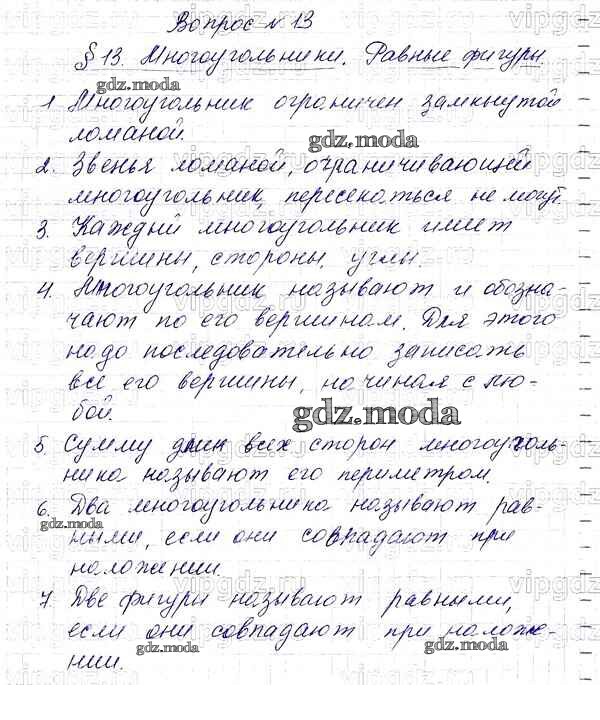 Вопрос № 13
§ 13. Многоугольники. Равные фигуры
gdz.moda
1. Многоугольник ограничен замкнутой
ломаной.
gdz.moda
2. Звенья ломаной, ограничивающей
многоугольник, пересекаться не могут.
3. Каждый многоугольник имеет
вершины, стороны, углы.
4. Многоугольник называют и обозна-
чают по его вершинам. Для этого
надо последовательно записать
все его вершины, начиная с лю-
бой.
gdz.moda
5. Сумму длин всех сторон многоуголь-
ника называют его периметром.
6. Два многоугольника называют рав-
gdz.moda
ными, если они совпадают при
наложении.
7. Две фигуры называют равными,
если они совпадают при наложе-
gdz.moda
gdz.moda
нии.